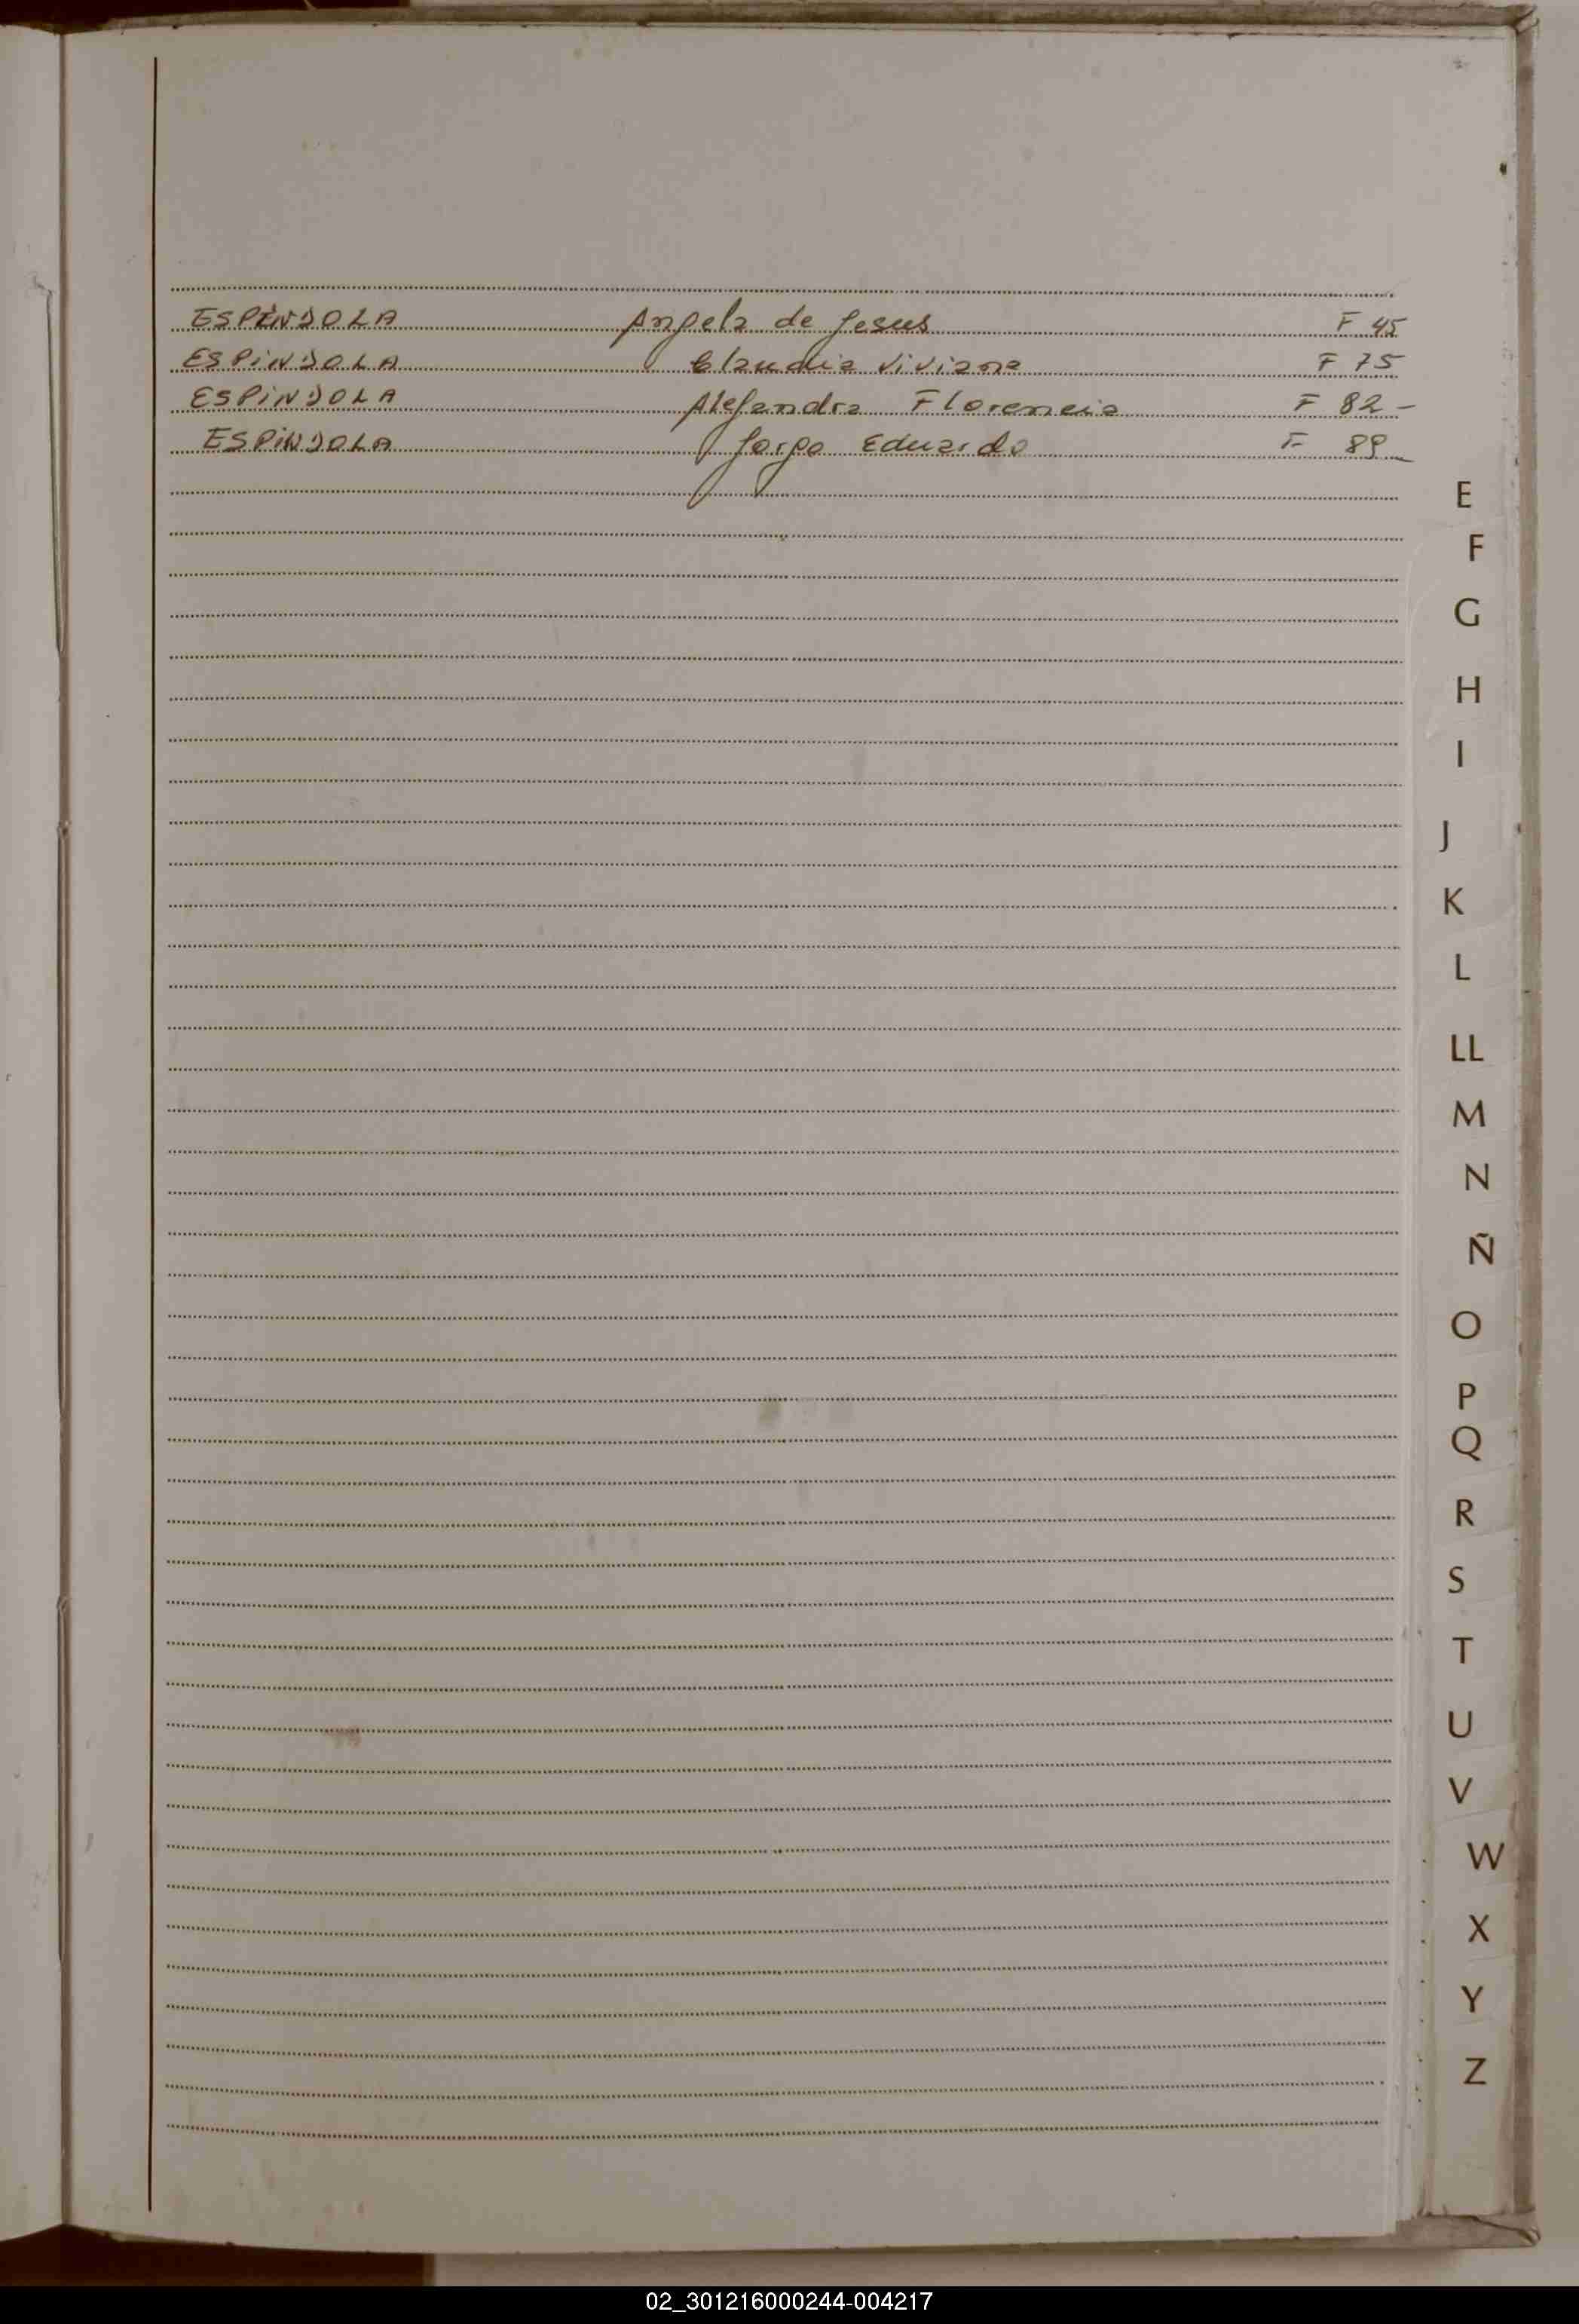 ESPINDOLA Angela de Jesus F 45
ESPINDOLA Claudia Viviana F 75
ESPINDOLA Alejandra Florencia F 82-
ESPINDOLA Jorge Eduardo F 89-
E
F
G
H
I
J
K
L
LL
M
N
Ñ
O
P
Q
R
S
T
U
V
W
X
Y
Z
02_301216000244-004217